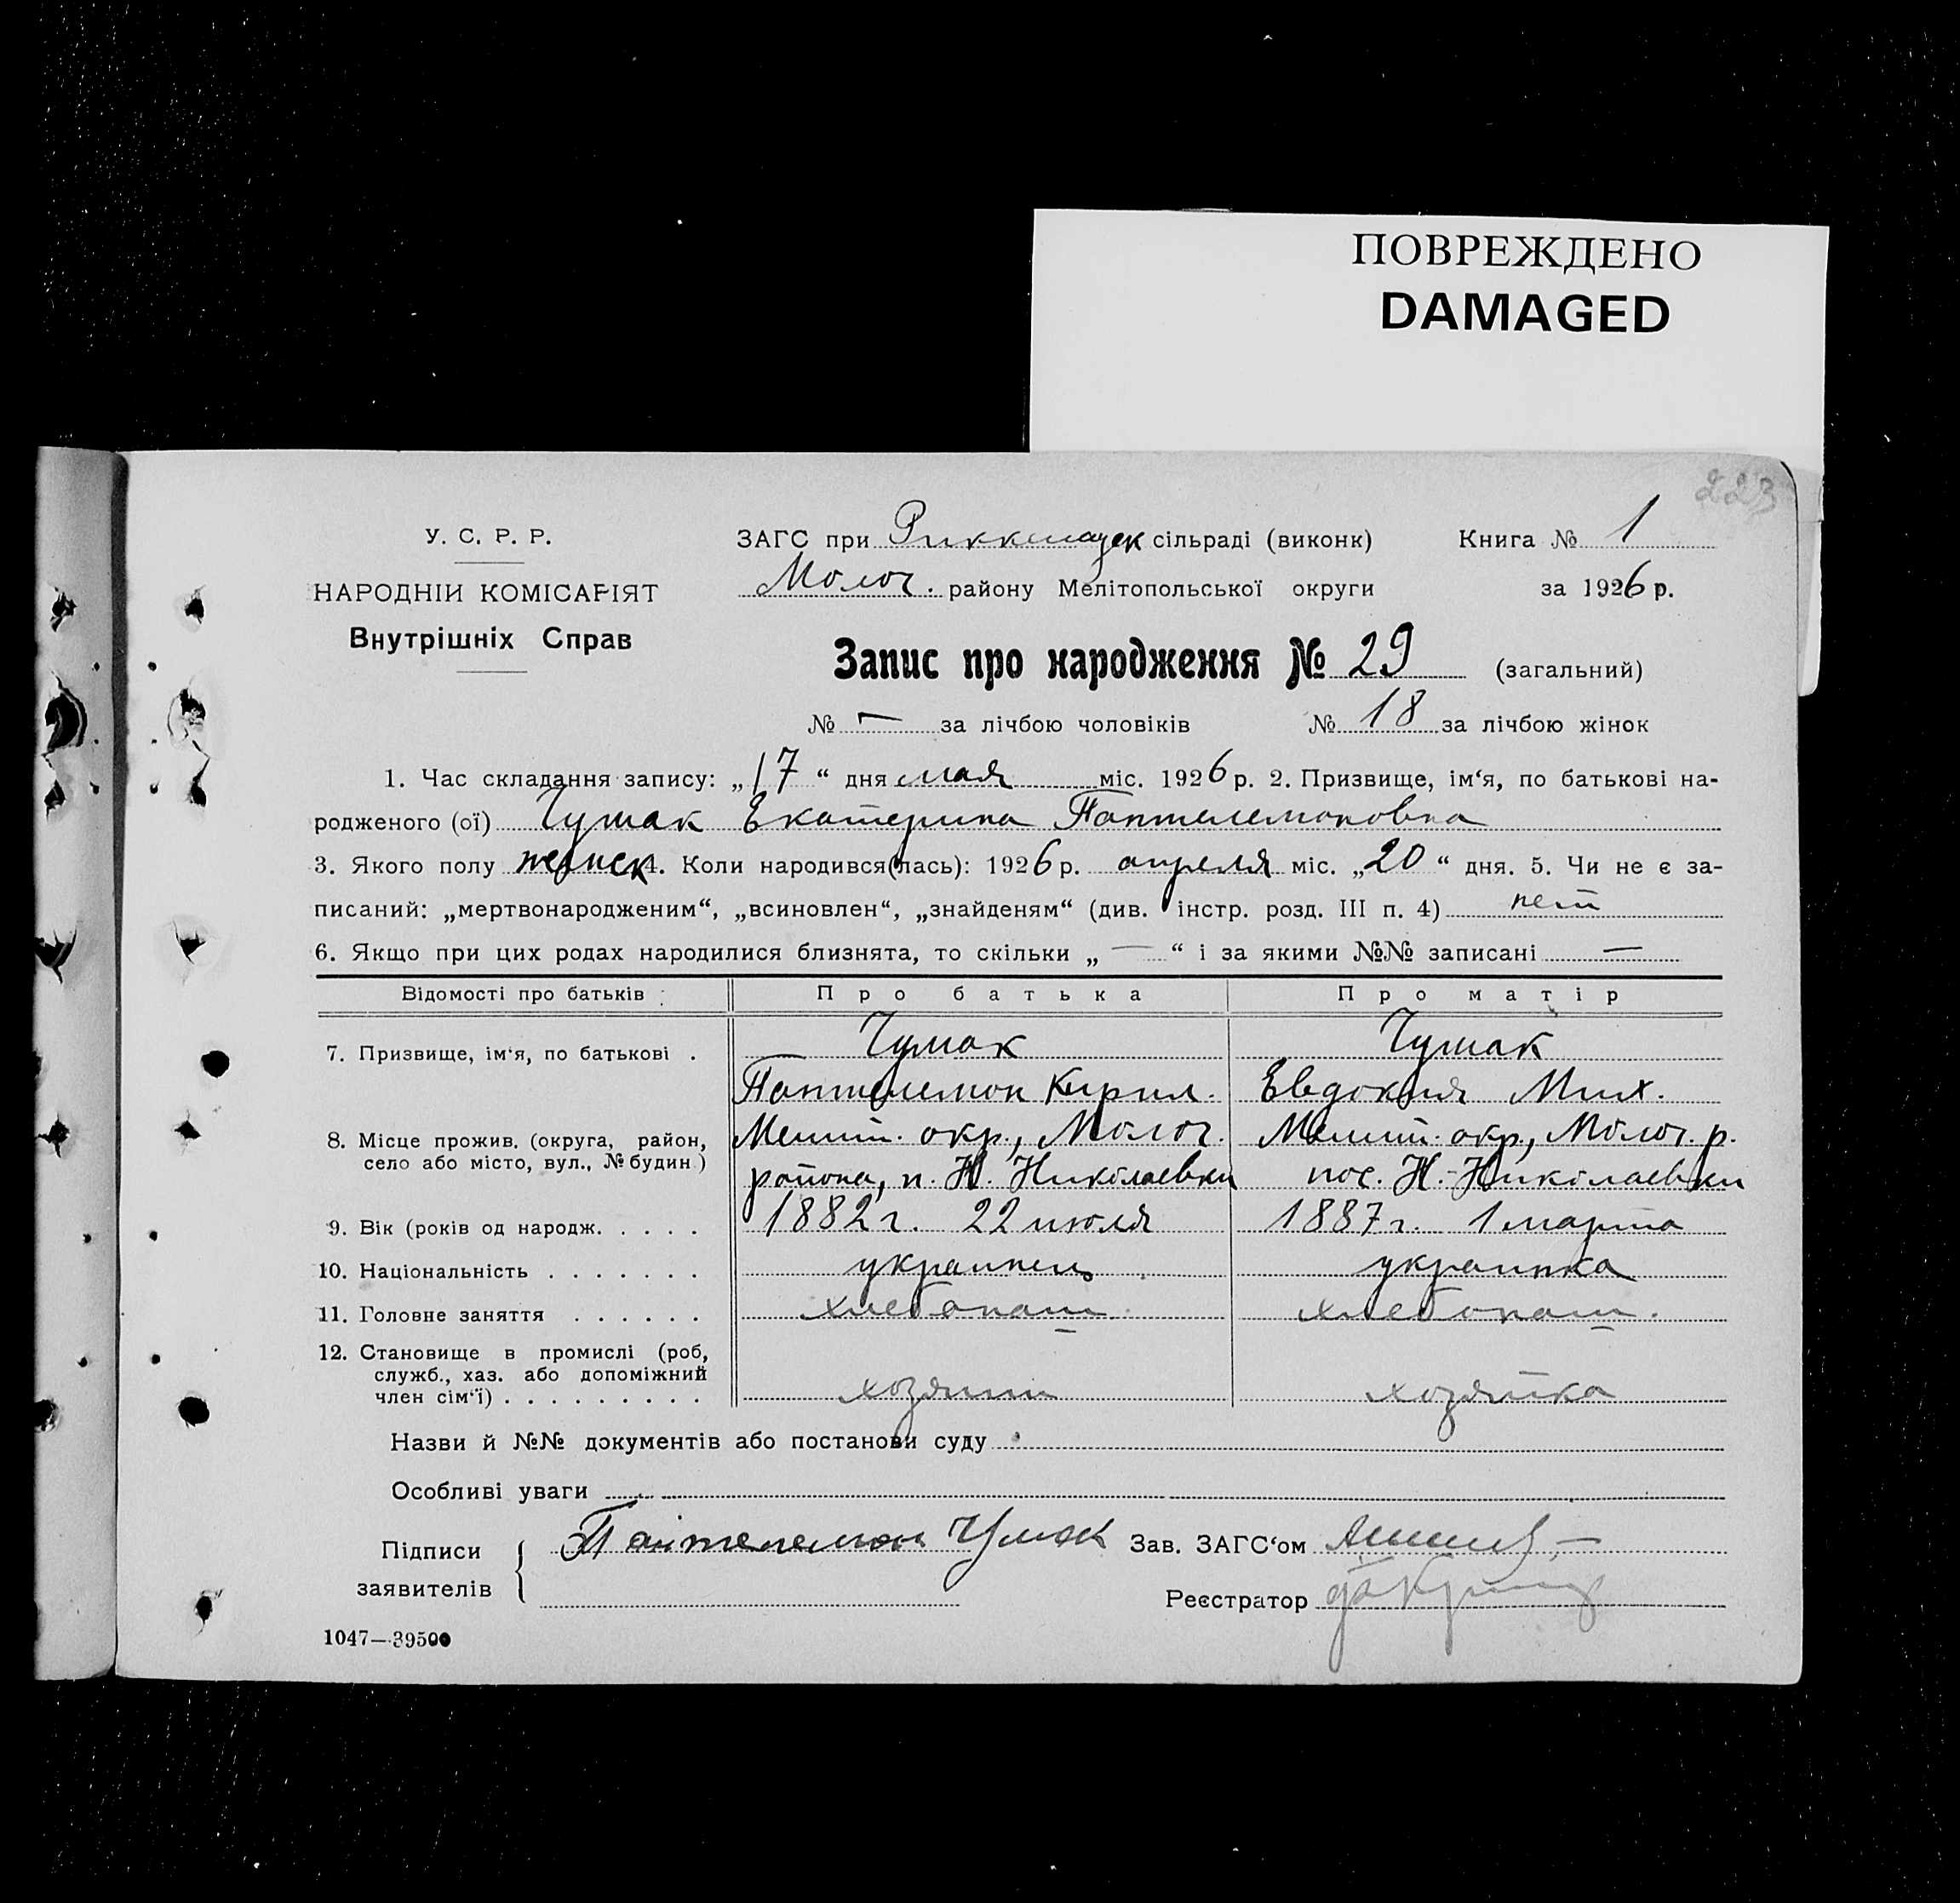 ПОВРЕЖДЕНО
DAMAGED
223
У. С. Р. Р.
НАРОДНІЙ КОМІСАРІЯТ
Внутрішніх Справ
ЗАГС при Рикенау сільраді (виконк) Книга № 1
Молоч. району Мелітопольської округи за 1926 р.
Запис про народження № 29 (загальний)
№ — за лічбою чоловіків № 18 за лічбою жінок
1. Час складання запису: „17“ дня мая міс. 1926 р. 2. Призвище, ім‘я, по батькові на-
родженого (ої) Чумак Екатерина Пантелемоновна
3. Якого полу женск 4. Коли народився(лась): 1926 р. апреля міс. „20“ дня. 5. Чи не є за-
писаний: „мертвонародженим“, „всиновлен“, „знайденям“ (див. інстр. розд. III п. 4) нет
6. Якщо при цих родах народилися близнята, то скільки „ — “ і за якими №№ записані —
Відомості про батьків : Про батька Про матір
7. Призвище, ім‘я, по батькові . Чумак Чумак
Пантелемон Кирил. Евдокия Мих.
8. Місце прожив. (округа, район, Мелит. окр., Молоч. Мелит. окр., Молоч. р.
село або місто, вул., № будин.) района, п. Н. Николаевки пос. Н.-Николаевки
9. Вік (років од народж. . . . . 1882 г. 22 июля 1887 г. 1 марта
10. Національність . . . . . . . украинец украинка
11. Головне заняття . . . . . . хлебопаш. хлебопаш.
12. Становище в промислі (роб,
служб., хаз. або допоміжний
член сім‘ї) . . . . . . . . . хозяин хозяйка
Назви й №№ документів або постанови суду
Особливі уваги
Підписи
заявителів
Пантелемон Чумак Зав. ЗАГС‘ом
Реєстратор
1047—39500